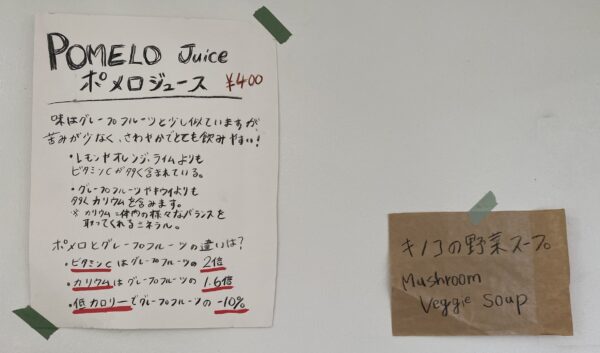 POMELO Juice
ポメロジュース ¥400
味はグレープフルーツと少し似ていますが、
苦みが少なく、さわやかでとても飲みやすい!
・レモンやオレンジ、ライムよりも
ビタミンCが多く含まれている。
・グレープフルーツやキウイよりも
多くカリウムを含みます。
※カリウム=体内の様々なバランスを
取ってくれるミネラル。
ポメロとグレープフルーツの違いは?
・ビタミンCはグレープフルーツの2倍
・カリウムはグレープフルーツの1.6倍
・低カロリーでグレープフルーツの-10%
キノコの野菜スープ
Mushroom
Veggie Soup